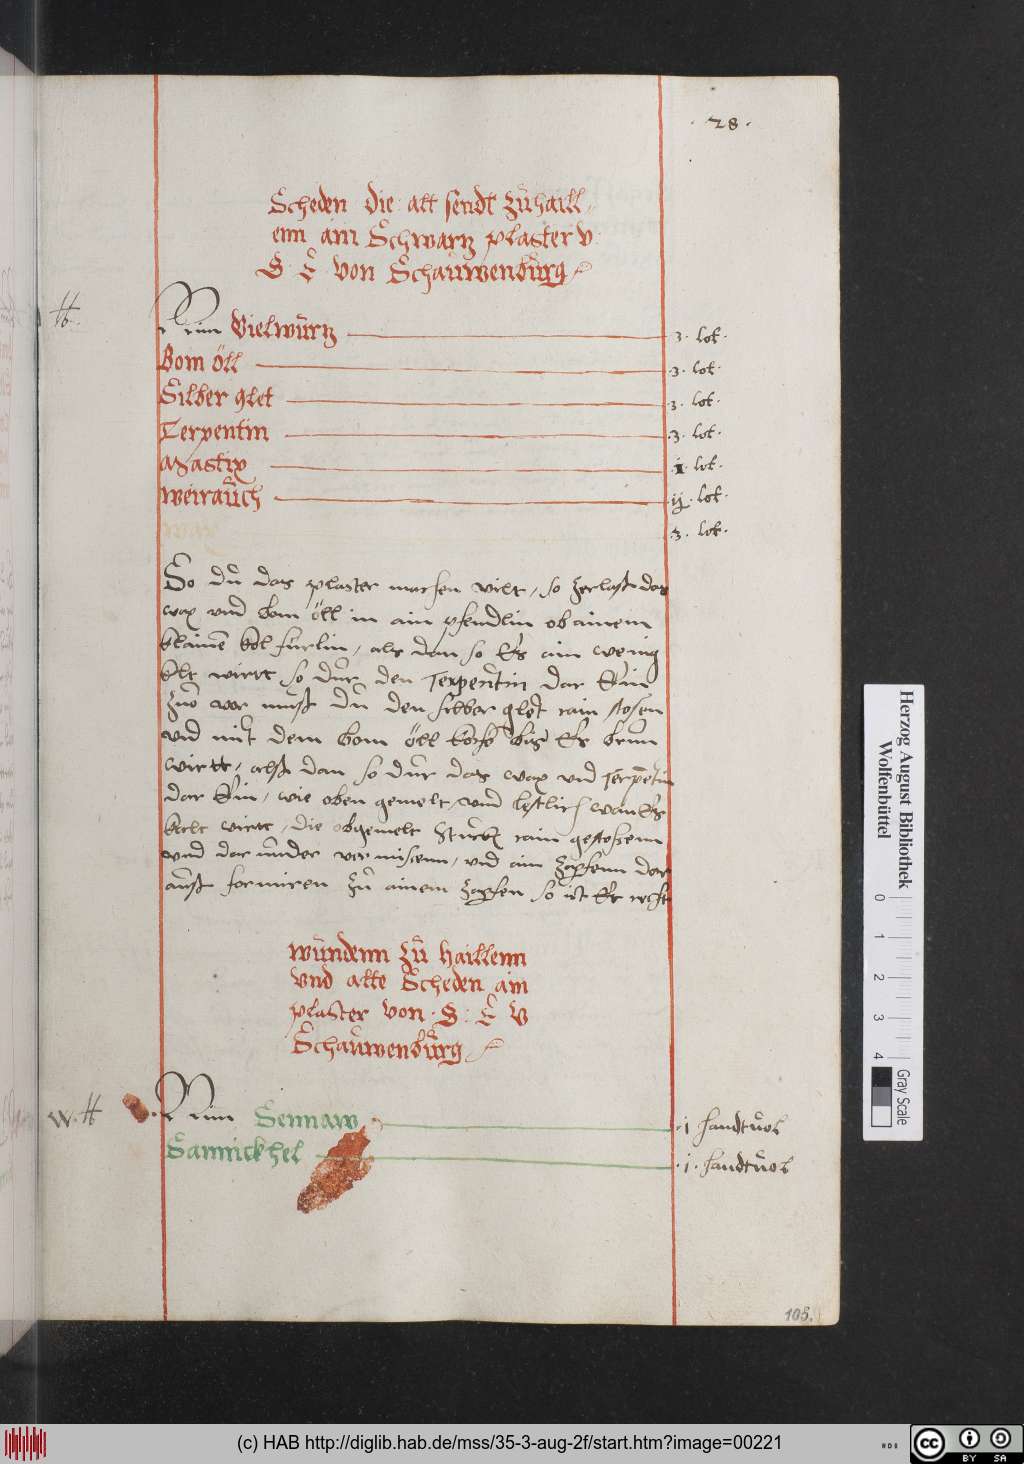 · 28 ·
Scheden die alt sendt zů haill
enn ain Schwartz plaster v:
S: E von Schaůwenbůrg
H.
Nim Vielwůrtz 3. lot.
Bom öll 3. lot.
Silber glet 3. lot.
Terpentin 3. lot.
Mastix i. lot.
weiraůch ij. lot.
wax 3. lot.
So dů das plaster machen wilt, so zerlasß das
wax vnd bom öll in ain pfendlin ob ainem
klainē kol fürlin, als dan so Es ain wenig
kelt wirtt so důe den Terpentin dar Ein
Zůo vor můsß dů den silber glett rain stosen
vnd mit dem bom öll koche bis Es brun
wirtt, alsß dan so důe das wax vnd Terpētin
dar Ein, wie oben gemelt, vnd lestlich wan Es
kelt wirtt, die obgemelt Stuckh rain gestossenn
vnd dar under vermiscenn, vnd ain zapfenn dar
ausß formiren zů ainem zapfen so ist Er recht
wůndenn zů haillenn
vnd alte Scheden ain
plaster von · S: E V
Schaůwenbůrg
W. H
Nim Sennaw ·i· handtůol
Sannickhel ·i· handtůol
105.
Herzog August Bibliothek
Wolfenbüttel
0 1 2 3 4
Gray Scale
(c) HAB http://diglib.hab.de/mss/35-3-aug-2f/start.htm?image=00221
cc BY SA